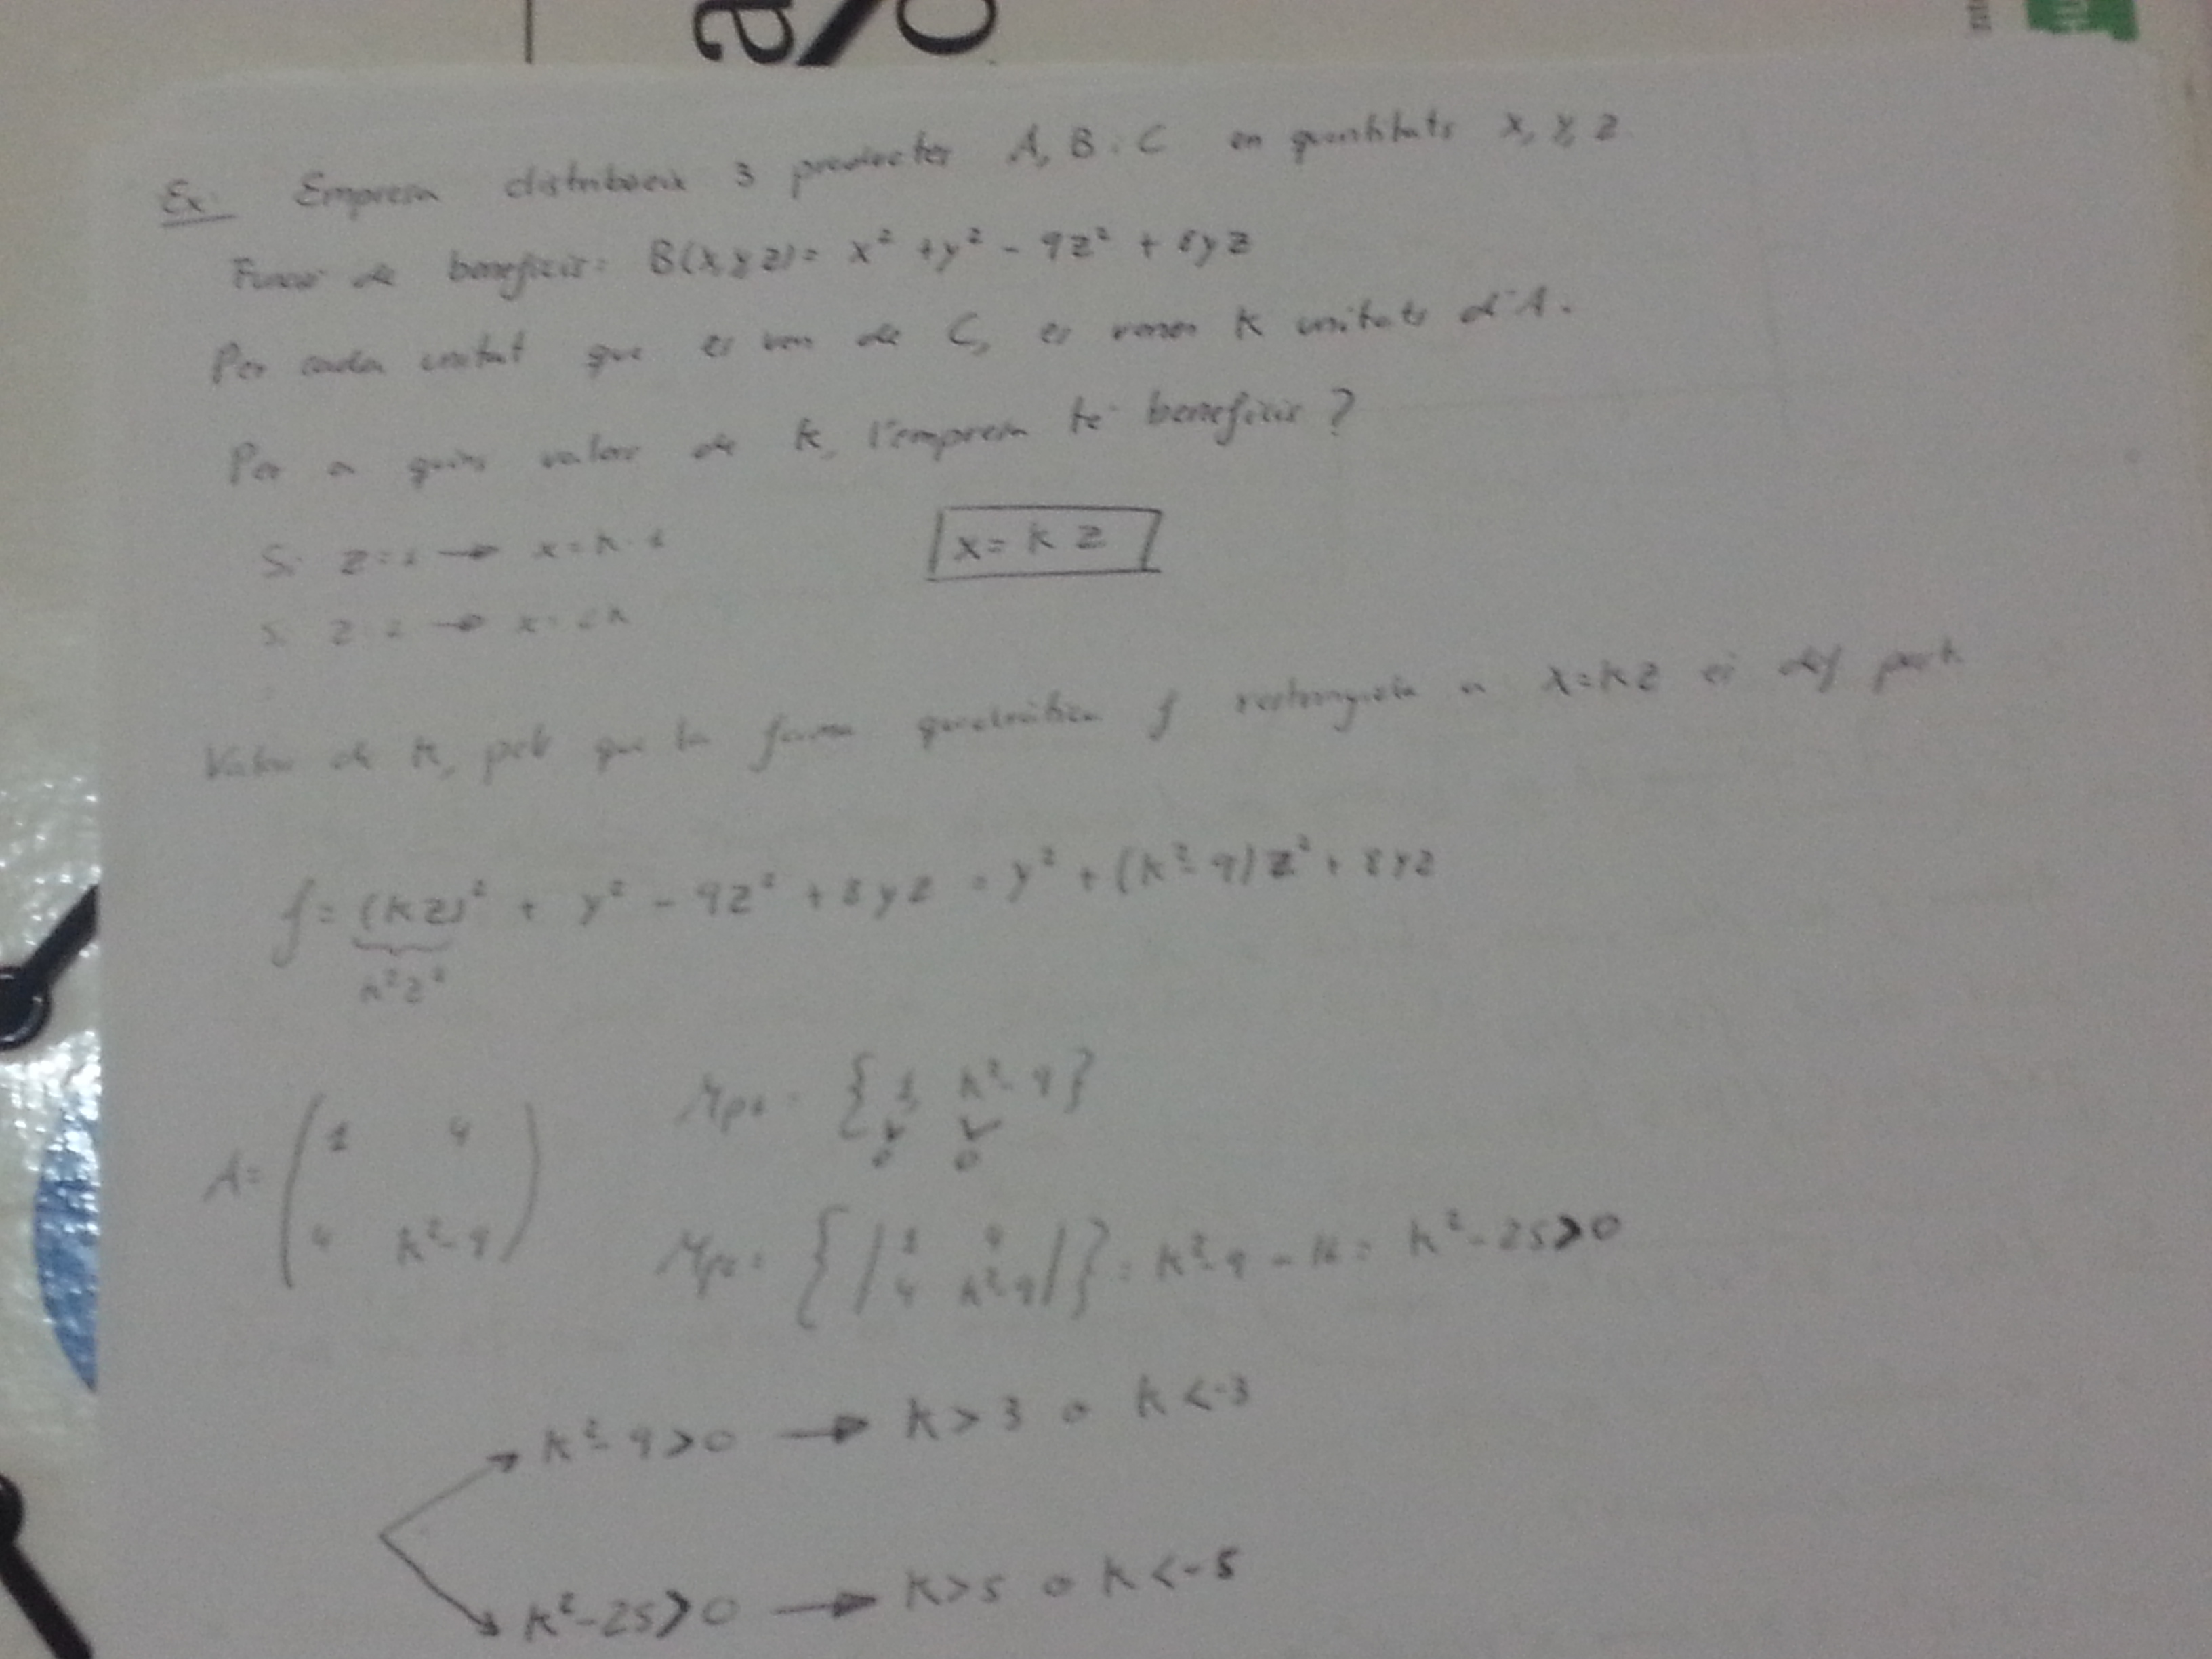 Ex: Empresa distribueix 3 productes A, B i C en quantitats x, y, z
Funció de benefici: B(x,y,z) = x² + y² - 9z² + 8yz
Per cada unitat que es ven de C, es venen K unitats d'A.
Per a quins valors de K, l'empresa té beneficis?
Si z=1 → x=K·1
x = K z
Valor de K, pel que la forma quadràtica f restringida a x=Kz és def. posit.
f = (Kz)² + y² - 9z² + 8yz = y² + (K²-9)z² + 8yz
K²z²
A = ( 1 4
4 K²-9 )
{ 1 K²-9 }
0 0
{ | 1 4
4 K²-9 | } = K²-9 - 16 = K² - 25 > 0
K²-9>0 → K>3 o K<-3
K²-25>0 → K>5 o K<-5